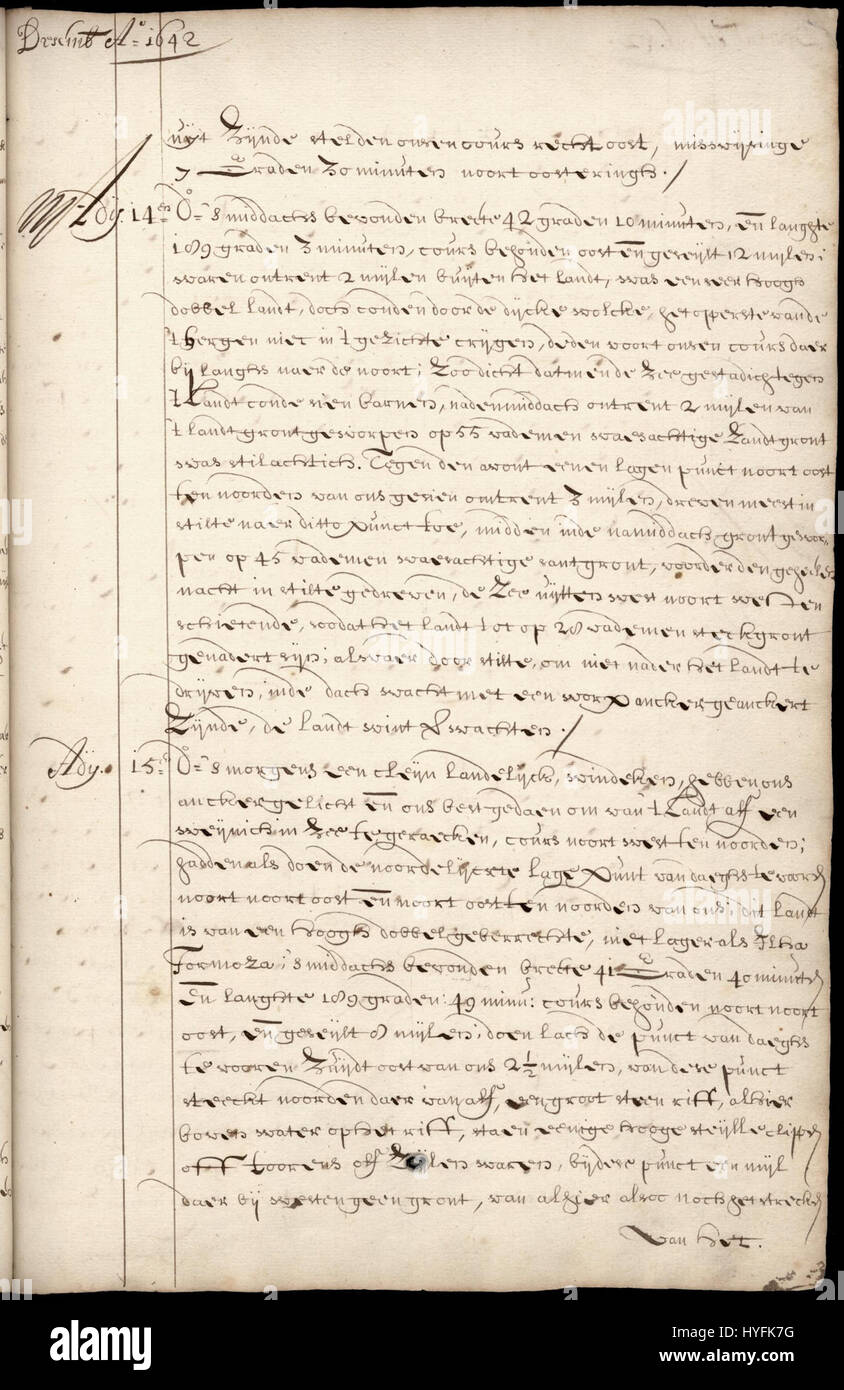 Desemb A.o 1642
uijt zijnde stelden onsen cours recht oost, miswijsinge
7 Graden 30 minuten noort oosteringh. /
Adij. 14en D.o 's middachs bevonden breete 42 graden 10 minuten, en langhte
189 graden 3 minuten, cours behouden oost en geseijlt 12 mijlen;
waren ontrent 2 mijlen buijten het landt, was een seer hoogh
dobbel landt, doch conden door de dijcke wolcke, het opperste van de
t bergen niet in 't gezichte crijgen, deden voort onsen cours daer
bij langhs naer de noort; zoo dicht dat men de zee gestadich tegen
't Landt conde sien barnen, nademiddach ontrent 2 mijlen van
't landt gront geworpen op 55 vademen waesachtige zandt gront
was stilachtich. Tegen den avont eenen lagen punct noort oost
ten noorden van ons gesien omtrent 3 mijlen, dreven meest in
stilte naer ditto punct toe, midden in de namiddach gront gewor
pen op 45 vademen waesachtige sant gront, voorder den geheelen
nacht in stilte gedreven, de zee uijtten west noort westen
schietende, sodat het landt tot op 28 vademen steckgront
genadert sijn; alwaer door stilte, om niet nader het landt te
drijven, in de dach wacht met een worp ancker geanckert
zijnde, de landt wint verwachten. /
Adij. 15. D.o 's morgens een cleijn landelijck windeken, hebben ons
ancker gelicht en ons best gedaen om van 't Landt aff een
weijnich in zee te geraecken, cours noort west ten noorden;
hadden als doen de noordelijcxte lage punt van daeghs te vooren
noort noort oost en noort oost ten noorden van ons; dit landt
is van een hoogh dobbel geberrechte, niet lager als Ilha
Formoza; 's middachs bevonden breete 41 Graden 40 minuten
En langhte 189 graden: 49 minu: cours behouden noort noort
oost, en geseijlt 8 mijlen; doen lach de punct van daeghs
te vooren zuijdt oost van ons 2 1/2 mijlen, van dese punct
streckt noorden daer van aff, een groot steen riff, alhier
boven water op het riff, staen eenige hooge steijlle clippen
off toorens off zeijlen waren, bij dese punct een mijl
daer bij westen geen gront, van alhier alsoo noch het strecken
van het.
alamy
Alamy Stock Photo
HYFK7G
www.alamy.com